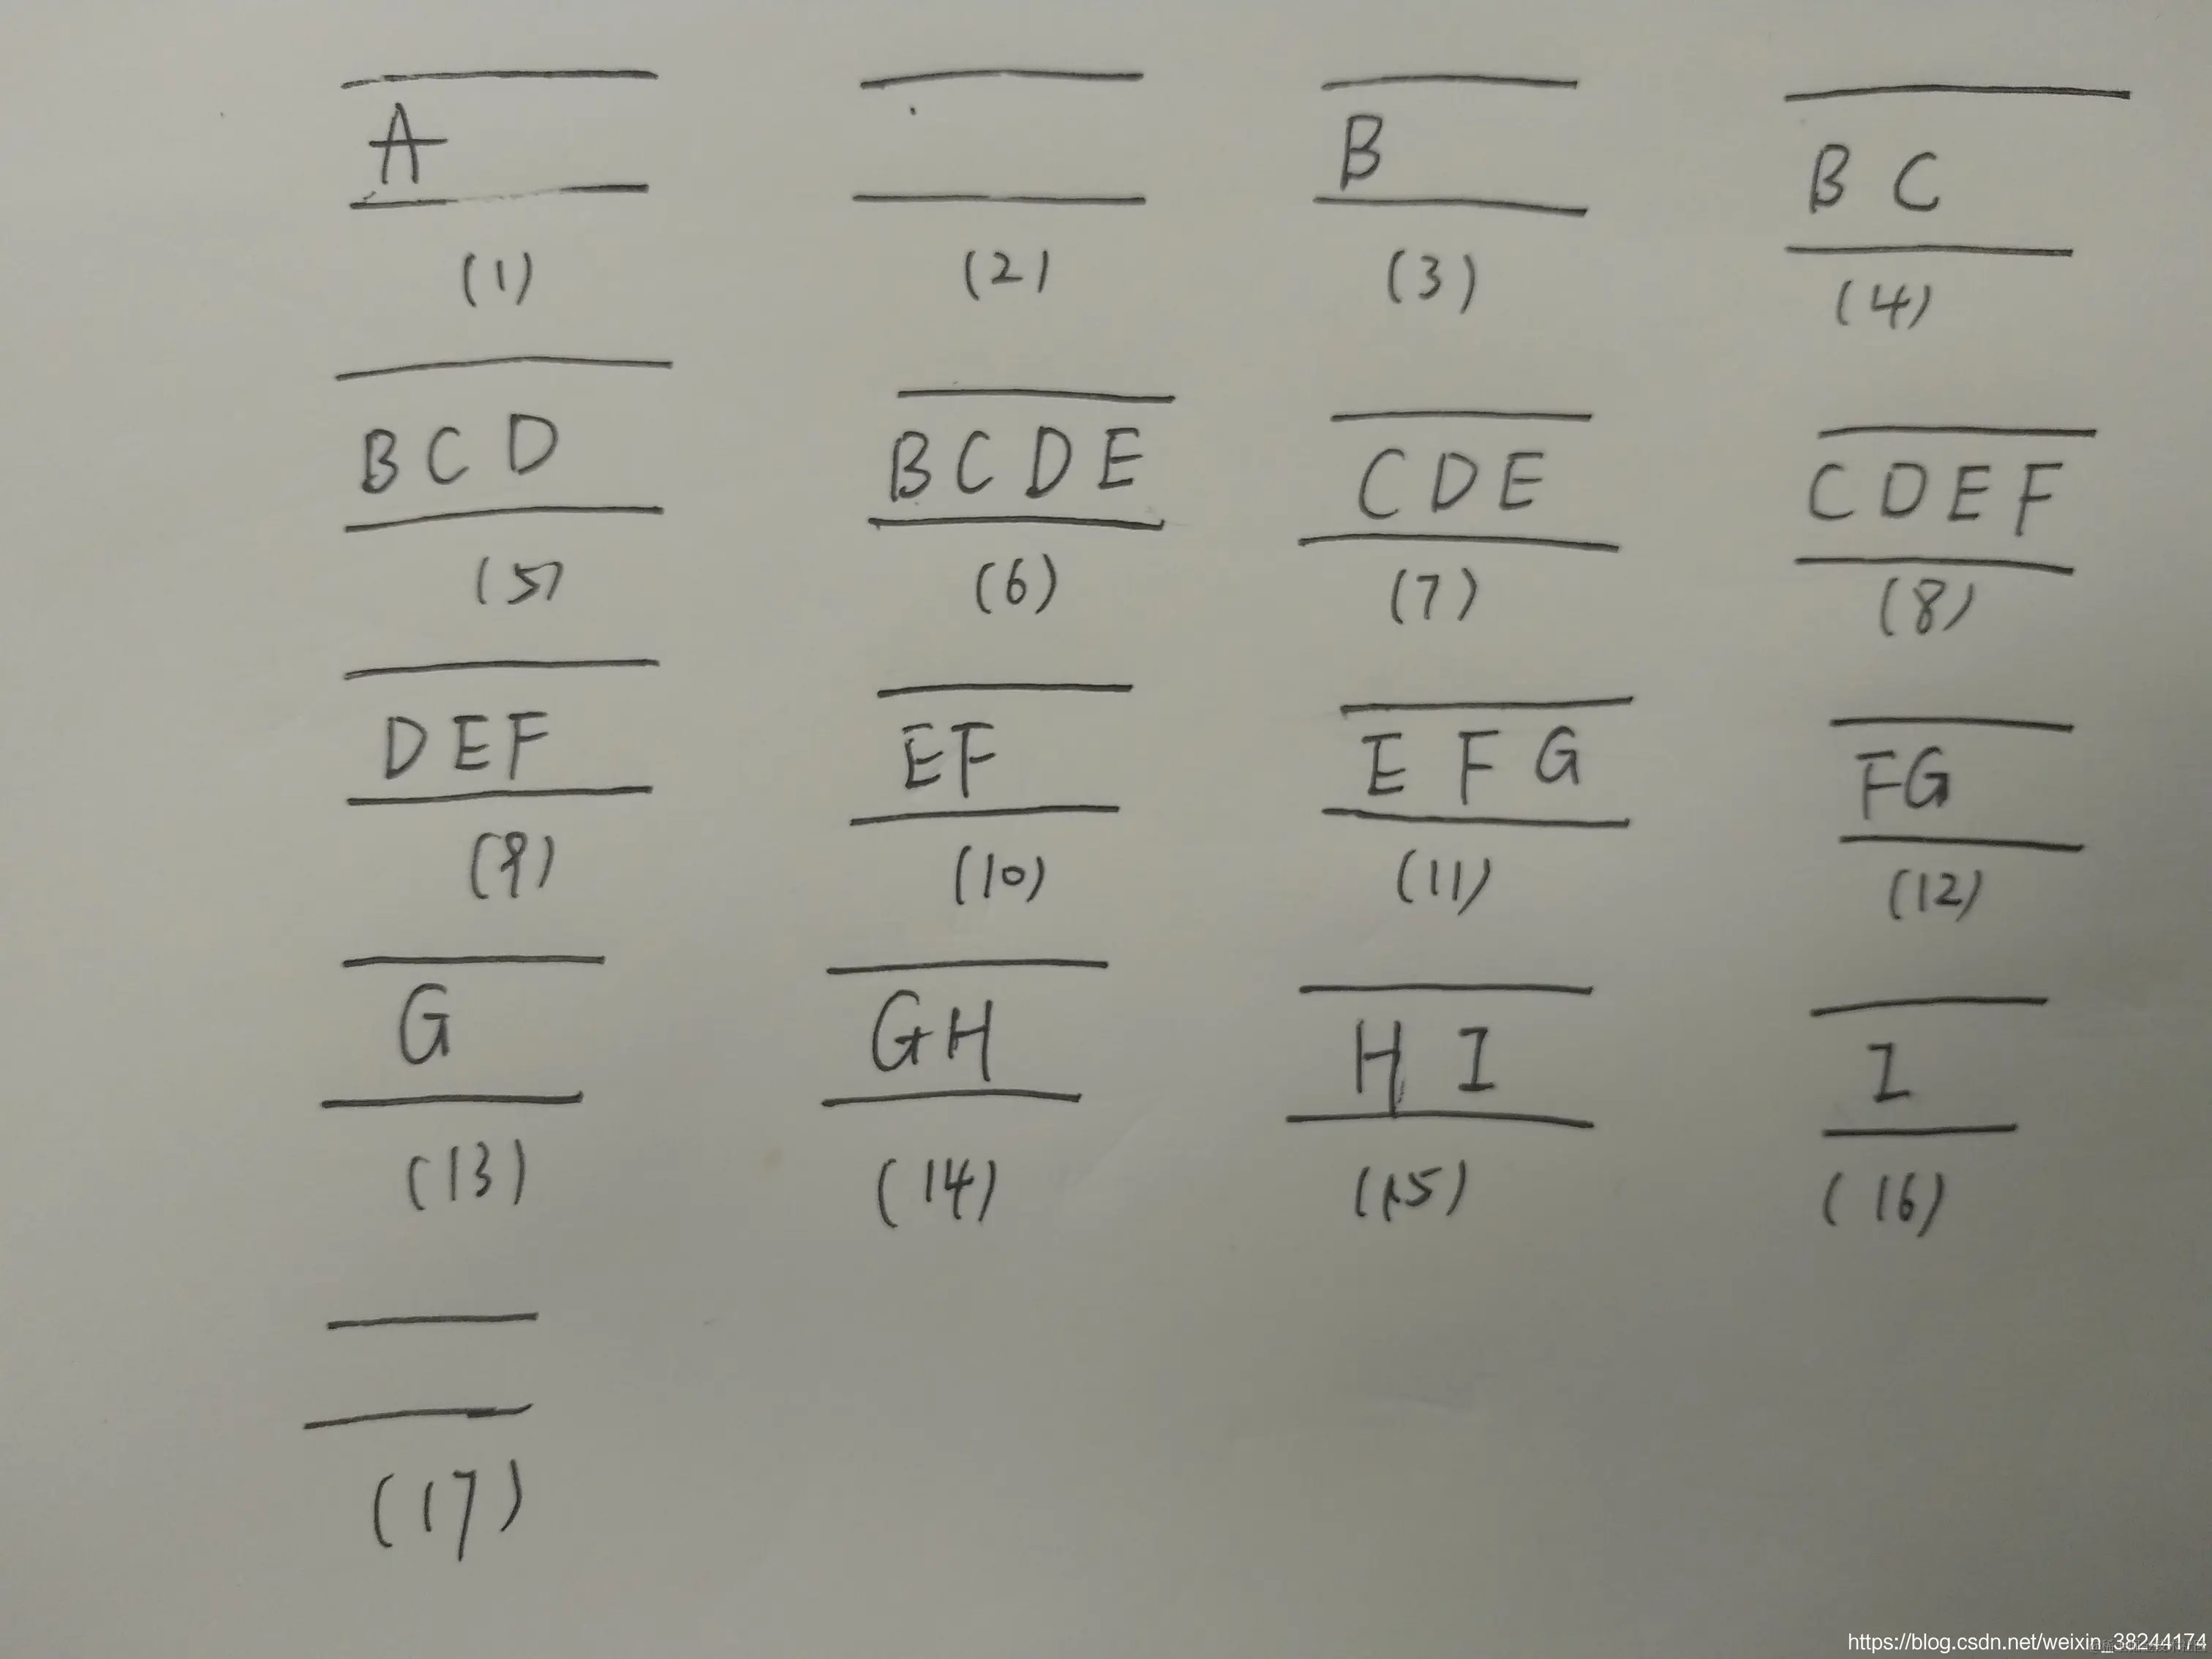 A B B C
(1) (2) (3) (4)
B C D B C D E C D E C D E F
(5) (6) (7) (8)
D E F E F E F G F G
(9) (10) (11) (12)
G G H H I I
(13) (14) (15) (16)
(17)
https://blog.csdn.net/weixin_38244174